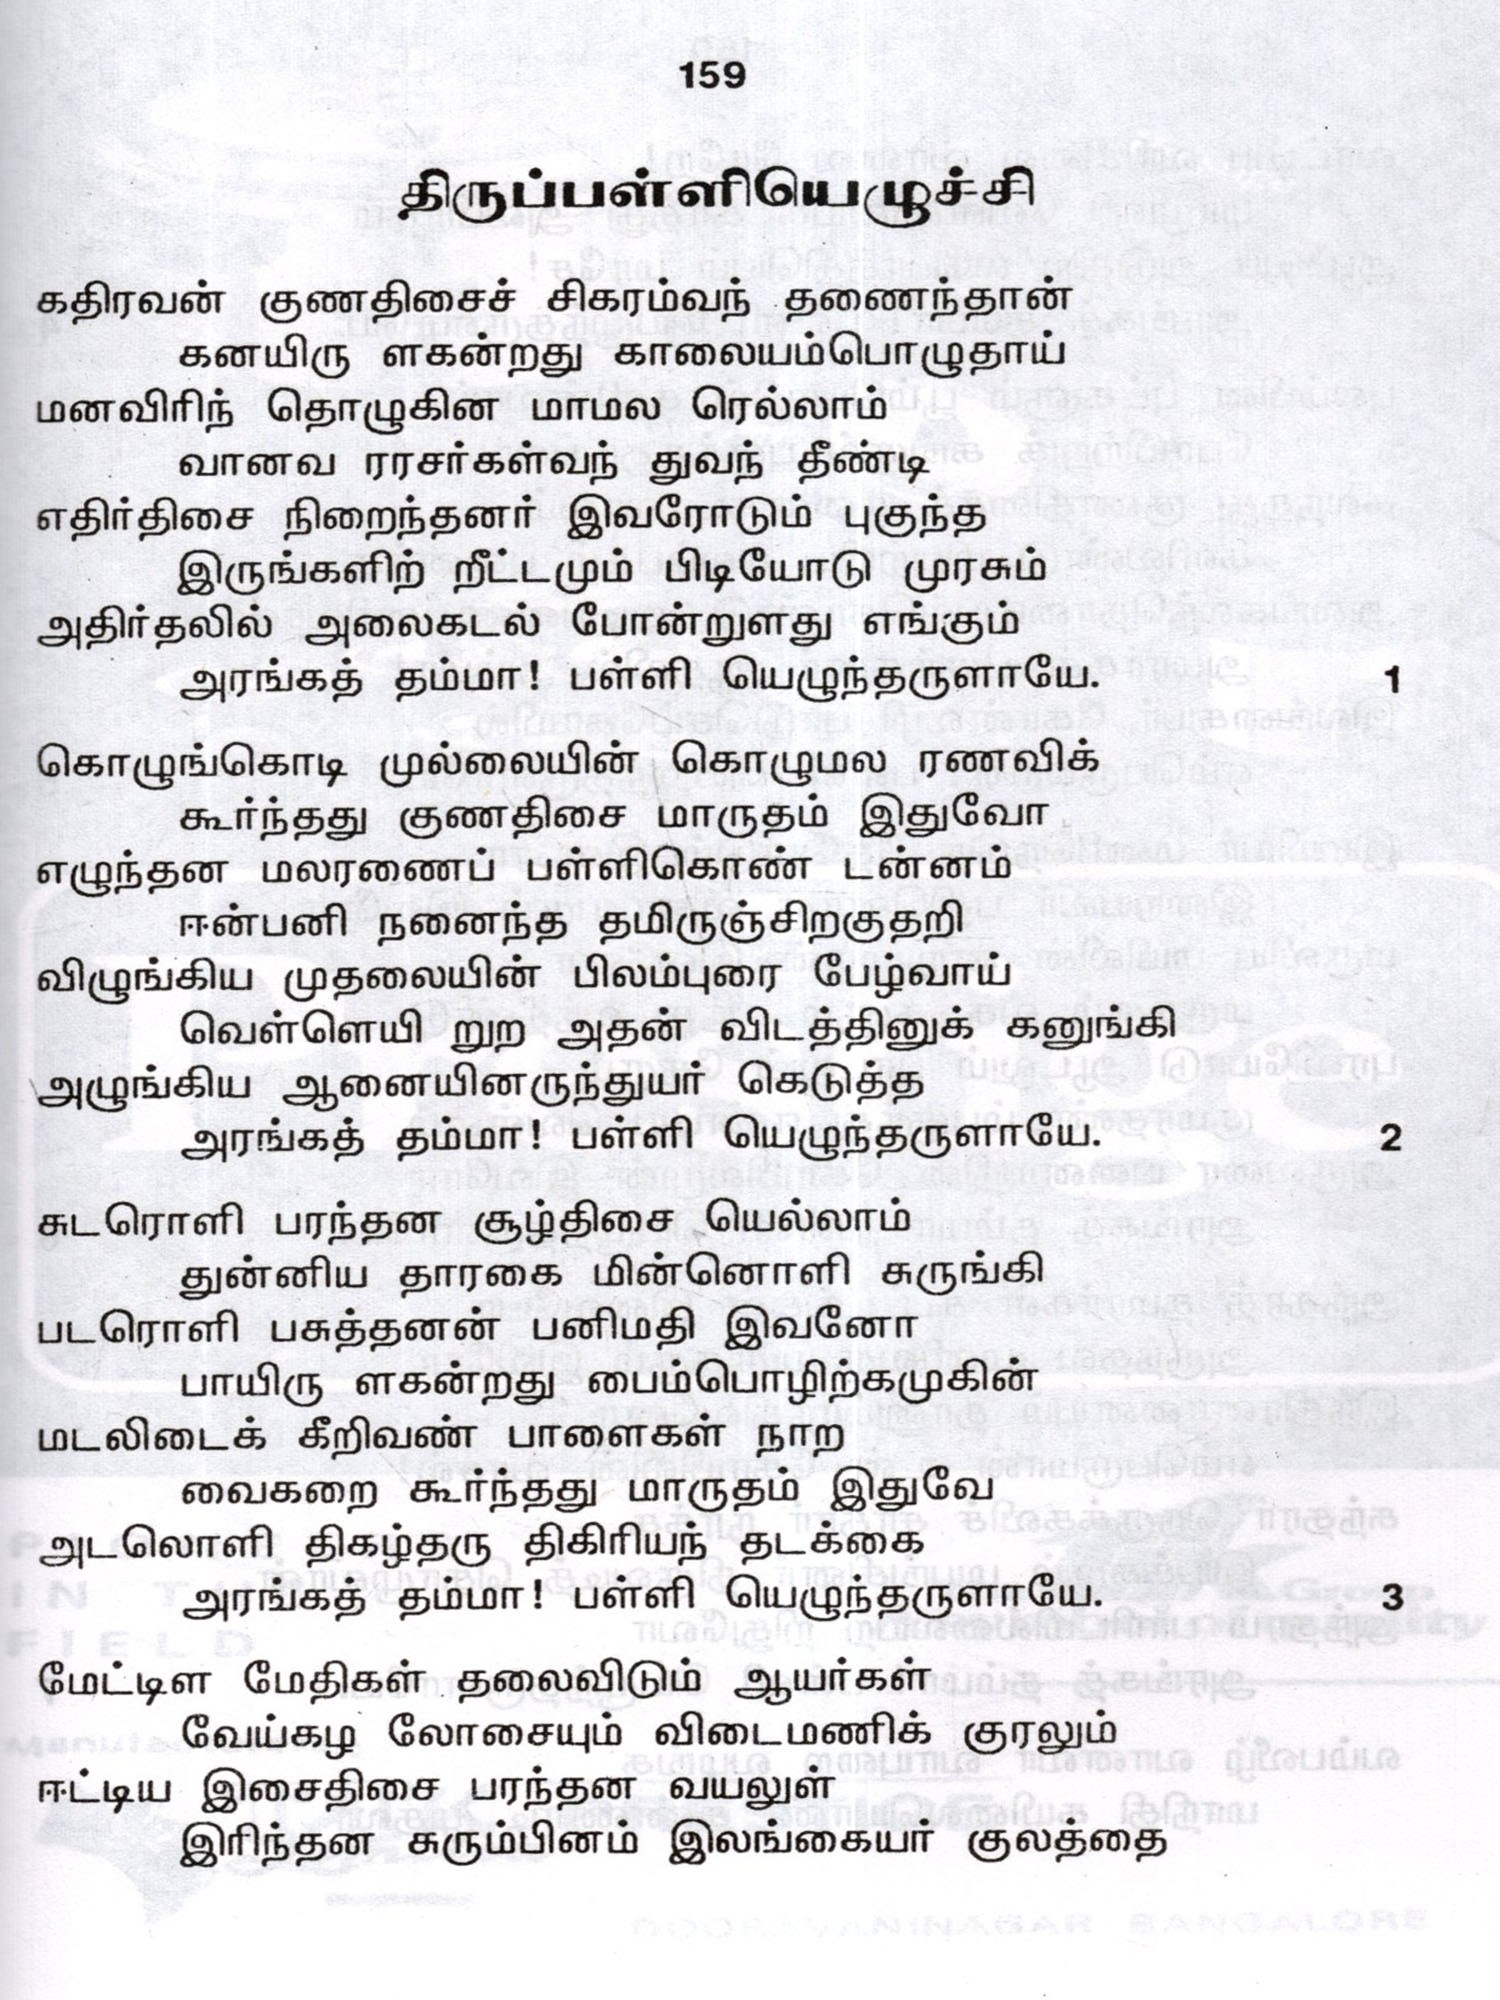 159
திருப்பள்ளியெழுச்சி
கதிரவன் குணதிசைச் சிகரம்வந் தணைந்தான்
கனயிரு ளகன்றது காலையம்பொழுதாய்
மனவிரிந் தொழுகின மாமல ரெல்லாம்
வானவ ரரசர்கள்வந் துவந் தீண்டி
எதிர்திசை நிறைந்தனர் இவரோடும் புகுந்த
இருங்களிற் றீட்டமும் பிடியோடு முரசும்
அதிர்தலில் அலைகடல் போன்றுளது எங்கும்
அரங்கத் தம்மா! பள்ளி யெழுந்தருளாயே. 1
கொழுங்கொடி முல்லையின் கொழுமல ரணவிக்
கூர்ந்தது குணதிசை மாருதம் இதுவோ
எழுந்தன மலரணைப் பள்ளிகொண் டன்னம்
ஈன்பனி நனைந்த தமிருஞ்சிறகுதறி
விழுங்கிய முதலையின் பிலம்புரை பேழ்வாய்
வெள்ளெயி றுற அதன் விடத்தினுக் கனுங்கி
அழுங்கிய ஆனையினருந்துயர் கெடுத்த
அரங்கத் தம்மா! பள்ளி யெழுந்தருளாயே. 2
சுடரொளி பரந்தன சூழ்திசை யெல்லாம்
துன்னிய தாரகை மின்னொளி சுருங்கி
படரொளி பசுத்தனன் பனிமதி இவனோ
பாயிரு ளகன்றது பைம்பொழிற்கமுகின்
மடலிடைக் கீறிவண் பாளைகள் நாற
வைகறை கூர்ந்தது மாருதம் இதுவே
அடலொளி திகழ்தரு திகிரியந் தடக்கை
அரங்கத் தம்மா! பள்ளி யெழுந்தருளாயே. 3
மேட்டிள மேதிகள் தலைவிடும் ஆயர்கள்
வேய்கழ லோசையும் விடைமணிக் குரலும்
ஈட்டிய இசைதிசை பரந்தன வயலுள்
இரிந்தன சுரும்பினம் இலங்கையர் குலத்தை